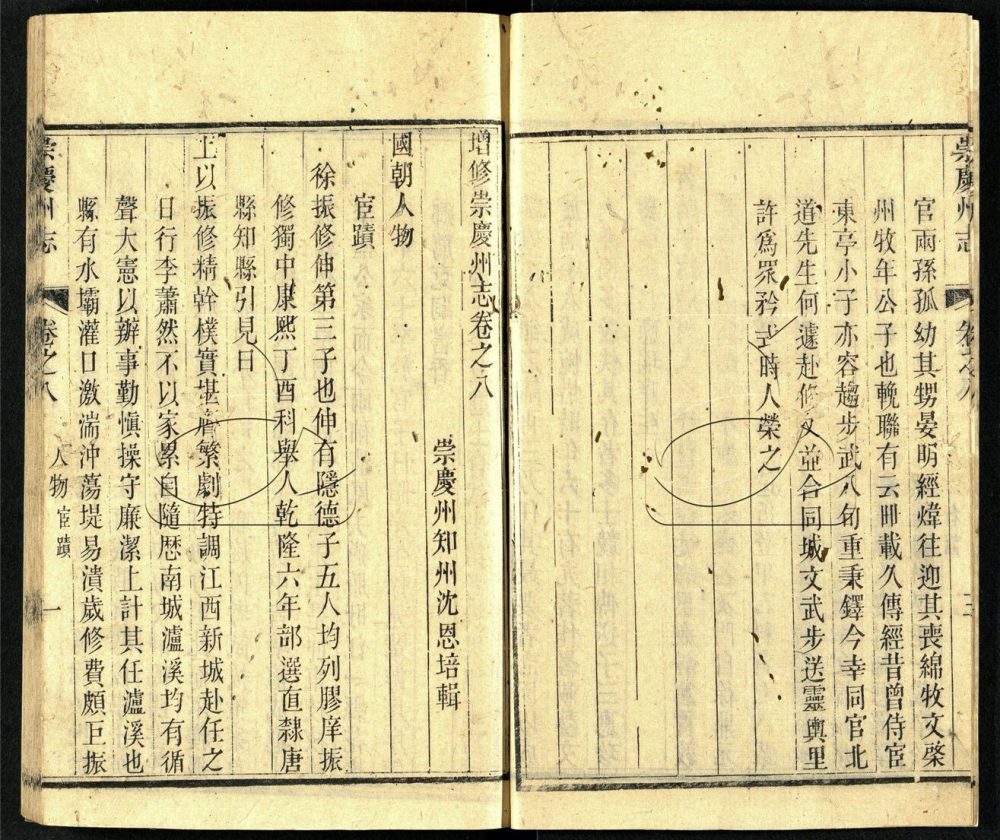 崇慶州志
卷之八
官兩孫孤幼其甥晏明經煒往迎其喪綿牧文棨
州牧年公子也輓聯有云卌載久傳經昔曾侍宦
東亭小子亦容趨步武八旬重秉鐸今幸同官北
道先生何遽赴修文並合同城文武步送靈輿里
許為眾矜式時人榮之
增修崇慶州志卷之八
崇慶州知州沈恩培輯
國朝人物
宦蹟
徐振修伸第三子也伸有隱德子五人均列膠庠振
修獨中康熙丁酉科舉人乾隆六年部選直隸唐
縣知縣引見日
上以振修精幹樸實堪膺繁劇特調江西新城赴任之
日行李蕭然不以家累自隨歷南城瀘溪均有循
聲大憲以辦事勤慎操守廉潔上計其任瀘溪也
縣有水壩灌口激湍沖蕩堤易潰歲修費頗巨振
崇慶州志
卷之八
人物 宦蹟
一